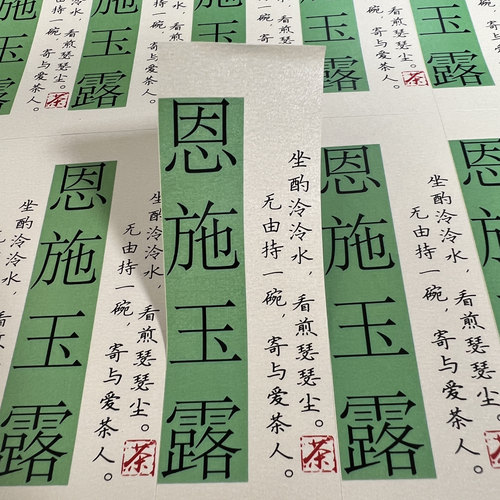 玉露
看煎瑟瑟尘。
寄与爱茶人。
玉露
看煎瑟瑟尘。
寄与爱茶人。
玉露
看煎瑟瑟尘。
寄与爱茶人。
茶
玉露
恩施玉露
坐酌泠泠水，
无由持一碗，
恩施玉露
坐酌泠泠水，看煎瑟瑟尘。
无由持一碗，寄与爱茶人。
茶
恩施玉露
坐酌泠泠水，看煎瑟瑟尘。
无由持一碗，寄与爱茶人。
茶